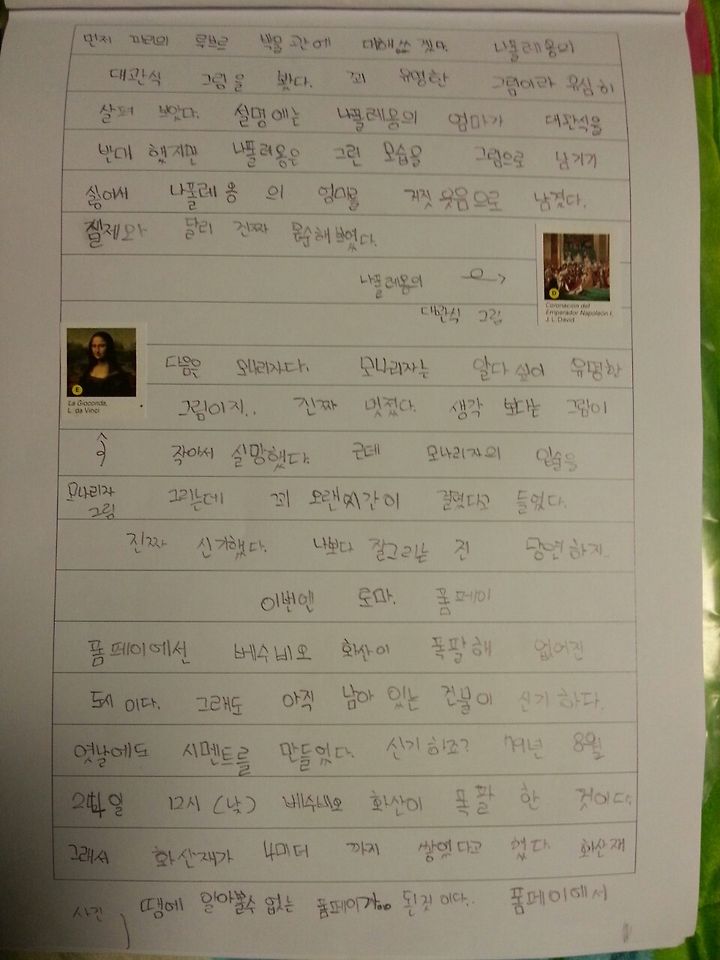 먼저 파리의 루브르 박물관에 대해쓰겠다. 나폴레옹의
대관식 그림을 봤다. 꾀 유명한 그림이라 유심히
살펴 보았다. 설명에는 나폴레옹의 엄마가 대관식을
반대 했지만 나폴레옹은 그런 모습을 그림으로 남기기
싫어서 나폴레옹의 엄마를 거짓 웃음으로 남겼다.
실제와 달리 진짜 순해 보였다.
나폴레옹의
대관식 그림
D
Coronación del
Emperador Napoleón I,
J. L. David
E
La Gioconda,
L. da Vinci
다음은 모나리자다. 모나리자는 알다 싶이 유명한
그림이지.. 진짜 멋졌다. 생각 보다는 그림이
작아서 실망했다. 근데 모나리자의 입술을
모나리자
그림
그리는데 꾀 오랜시간이 걸렸다고 들었다.
진짜 신기했다. 나보다 잘그리는 건 당연하지..
이번엔 로마. 폼페이
폼페이에선 베수비오 화산이 폭팔해 없어진
도시 이다. 그래도 아직 남아 있는 건물이 신기하다.
옛날에도 시멘트를 만들었다. 신기하죠? 79년 8월
24일 12시 (낮) 베수비오 화산이 폭팔 한 것이다.
그래서 화산재가 4미터 까지 쌓였다고 했다. 화산재
땜에 알아볼수 없는 폼페이가 된것이다.. 폼페이에서
사진